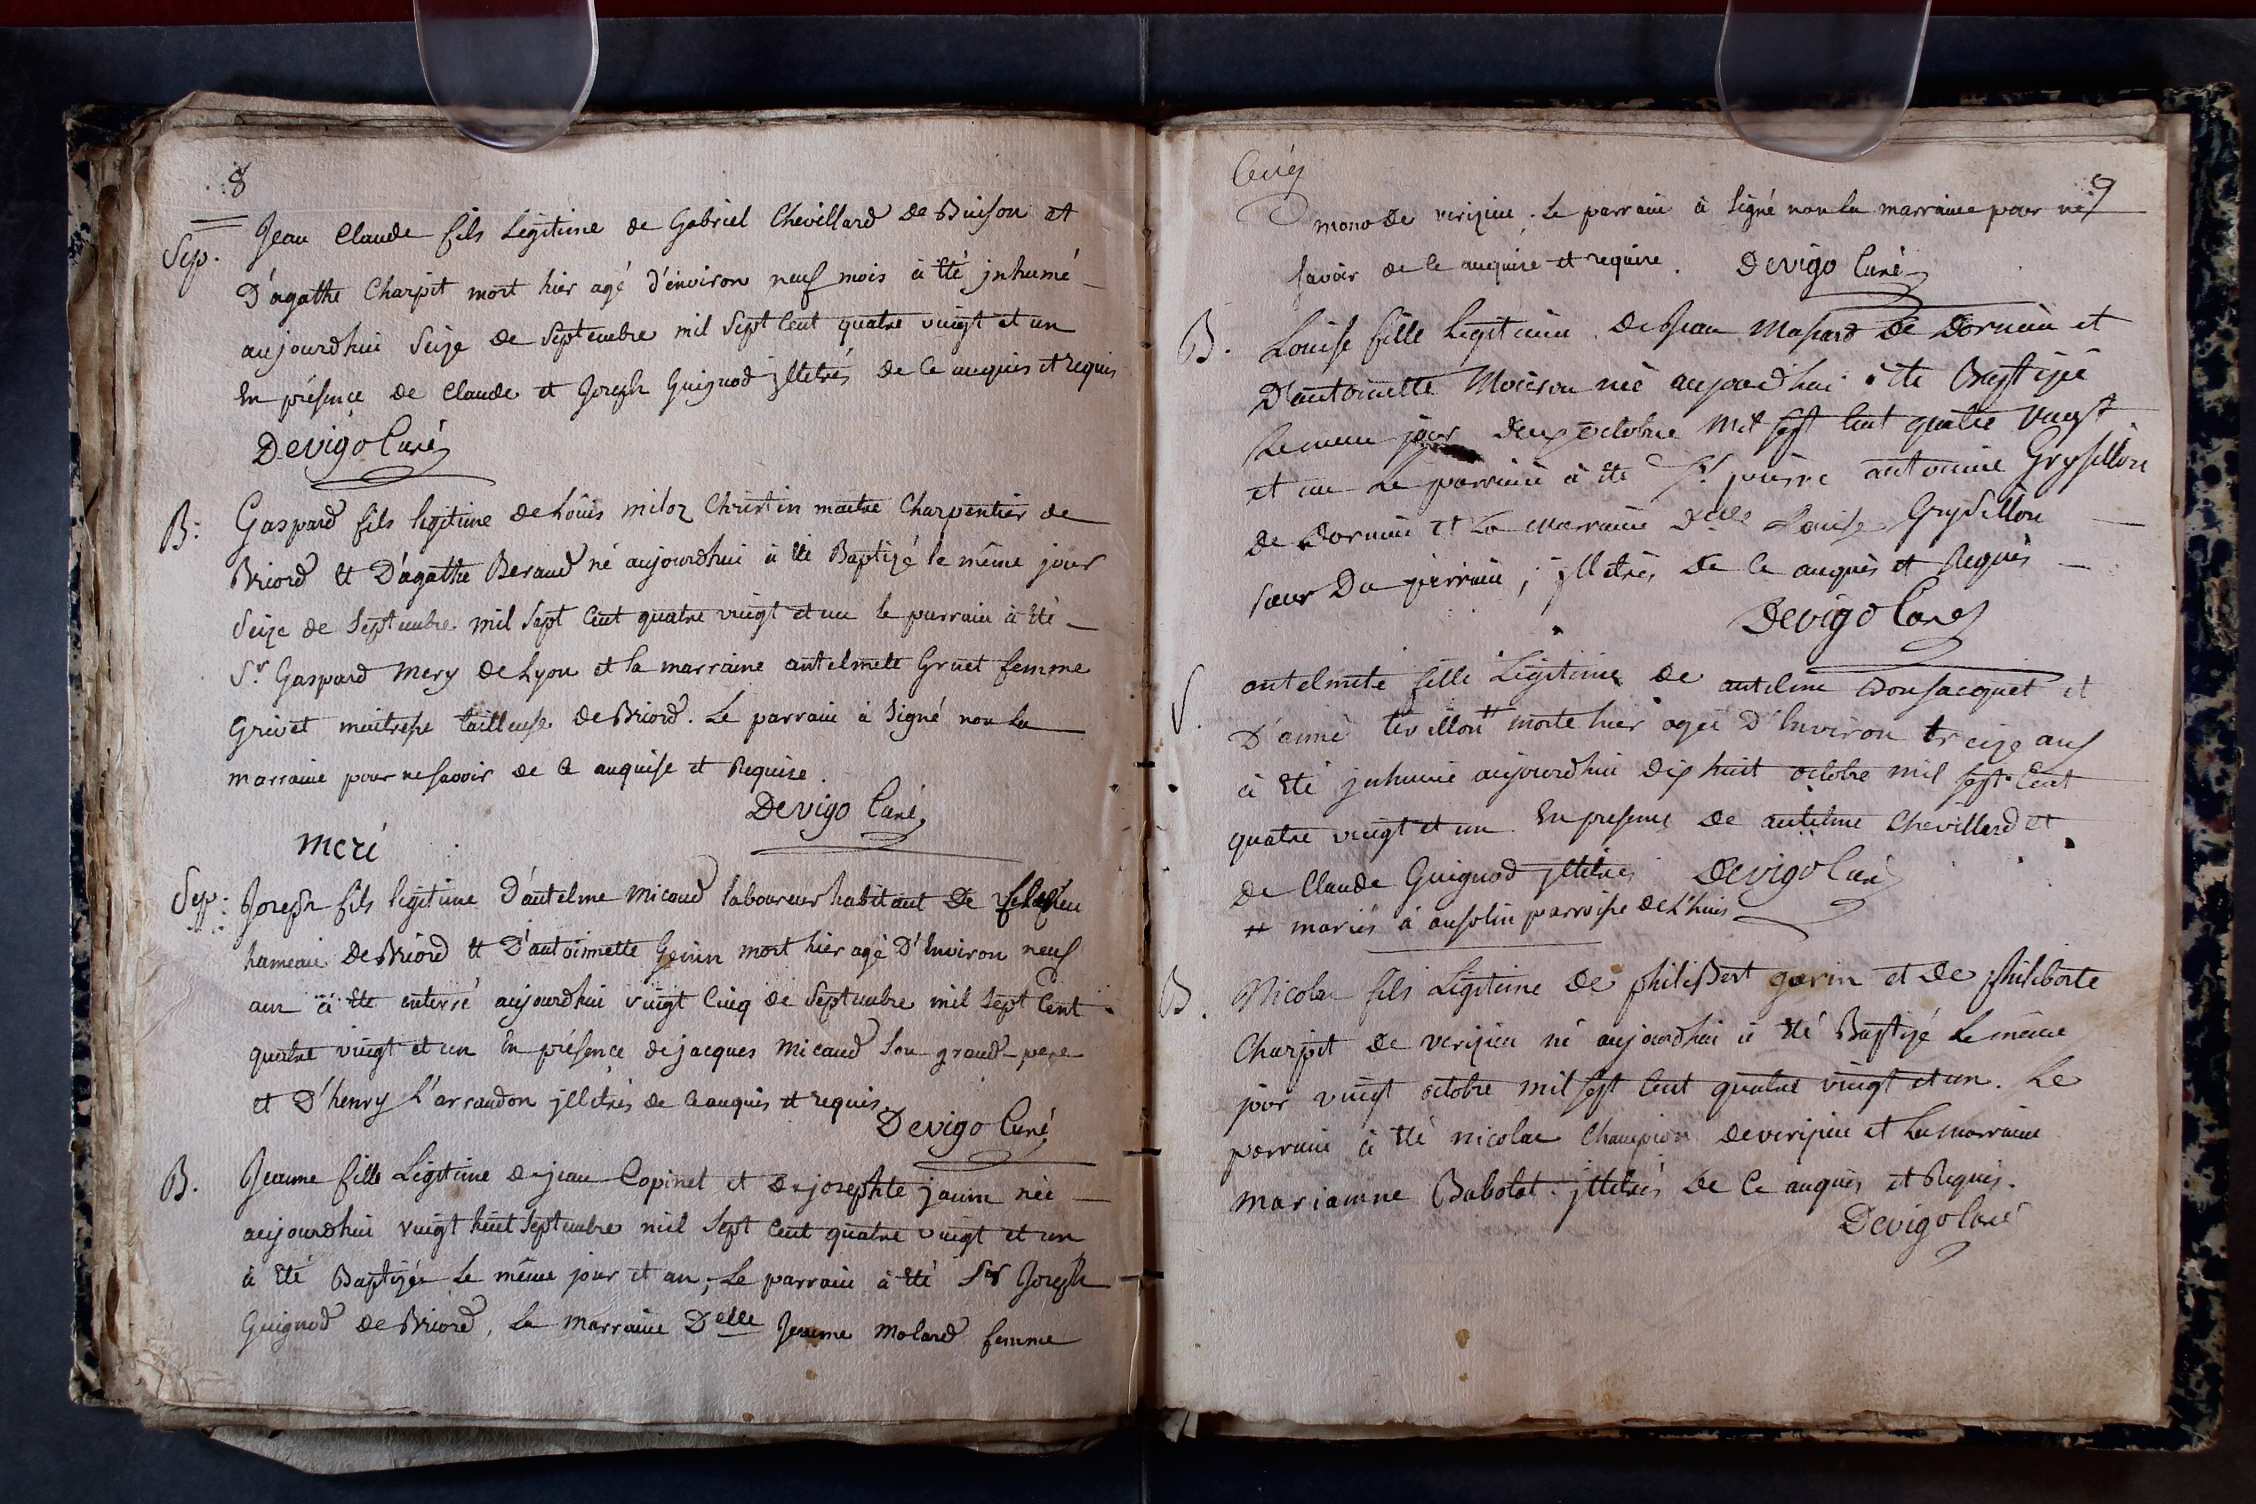 8
Sep. Jean Claude fils Légitime de Gabriel Chevillard de Buison et
D'agathe Charpit mort hier agé d'environ neuf mois à Eté jnhumé
aujourdhui Seize de Septembre mil Sept Cent quatre vingt et un
En présence de Claude et Joseph Guignod jlletrés de Ce anquis et requis
Devigo Curé
B. Gaspard fils légitime de Loüis miloz Christin maitre Charpentier de
Briord et D'agathe Beraud né aujourdhui à Eté Baptizé le même jour
Seize de Septembre mil Sept Cent quatre vingt et un le parrain à Eté
Sr Gaspard mery de Lyon et la marraine antelmete Gruet femme
Grivet maitresse tailleuse de Briord. Le parrain à Signé non la
marraine pour ne savoir de Ce anquise et Requise.
Devigo Curé
meri
Sep. Joseph fils légitime D'antelme micoud laboureur habitant De
hameau de Briord et D'antoinette Genin mort hier agé D'Environ neuf
ans à Eté enterré aujourdhui vingt Cinq de Septembre mil Sept Cent
quatre vingt et un En présence de jacques micoud Son grand-pere
et D'henry L'arraudon jlletrés de Ce anquis et requis
Devigo Curé
B. Jeanne fille Légitime de jean Copinet et de josephte janin née
aujourdhui vingt huit Septembre mil Sept Cent quatre vingt et un
à Eté Baptizée Le même jour et an, Le parrain à Eté Sr Joseph
Guignod de Briord, La marraine Delle Jeanne molard femme
9
mono de veripieu. Le parrain à Signé non la marraine pour ne
savoir de Ce anquise et requise. Devigo Curé
B. Louise fille Legitime de Jean Massard de Dornieu et
D'antoinette Moiroon née aujourdhui à Eté Baptizée
le meme jour deux octobre mil sept Cent quatre vingt
et un Le parrain à Eté Sr pierre antoine Grysillon
de Dornieu et La marraine Delle Louise Grysillon
sœur Du parrain, jlletrés de Ce anquis et Requis
Devigo Curé
S. antelmete fille Légitime de antelme Bonjacquet et
D'aimé tevillon ++ morte hier agée D'Environ treize ans
à Eté jnhumée aujourdhui dix huit octobre mil sept Cent
quatre vingt et un En presence de antelme Chevillard et
de Claude Guignod jlletrés Devigo Curé
++ mariés à ansolin parroisse de L'huis
B. Nicolas fils Légitime de philibert garin et de philiberte
Charpit de veripieu né aujourdhui à Eté Baptizé Le même
jour vingt octobre mil sept Cent quatre vingt et un. Le
parrain à Eté nicolas Champion de veripieu et La marraine
marianne Babolat. jlletrés de Ce anquis et Requis.
Devigo Curé